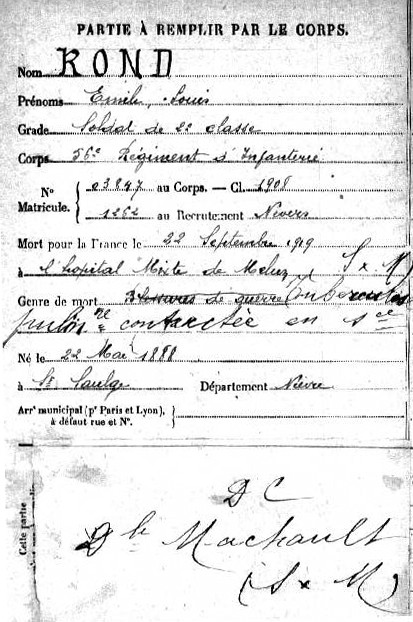 PARTIE À REMPLIR PAR LE CORPS.
Nom ROND
Prénoms Emile, Louis
Grade Soldat de 2e classe
Corps 56e Régiment d'Infanterie
N° Matricule. { 03847 au Corps. — Cl. 1908
1262 au Recrutement Nevers
Mort pour la France le 22 Septembre 1919
à l'hopital Mixte de Melun (S. x M)
Genre de mort Blessures de guerre Tuberculose
pulmre contractée en sce
Né le 22 Mai 1888
à St Saulge Département Nièvre
Arrt municipal (pr Paris et Lyon), à défaut rue et N°.
Cette partie
DC
Machault
(S x M)